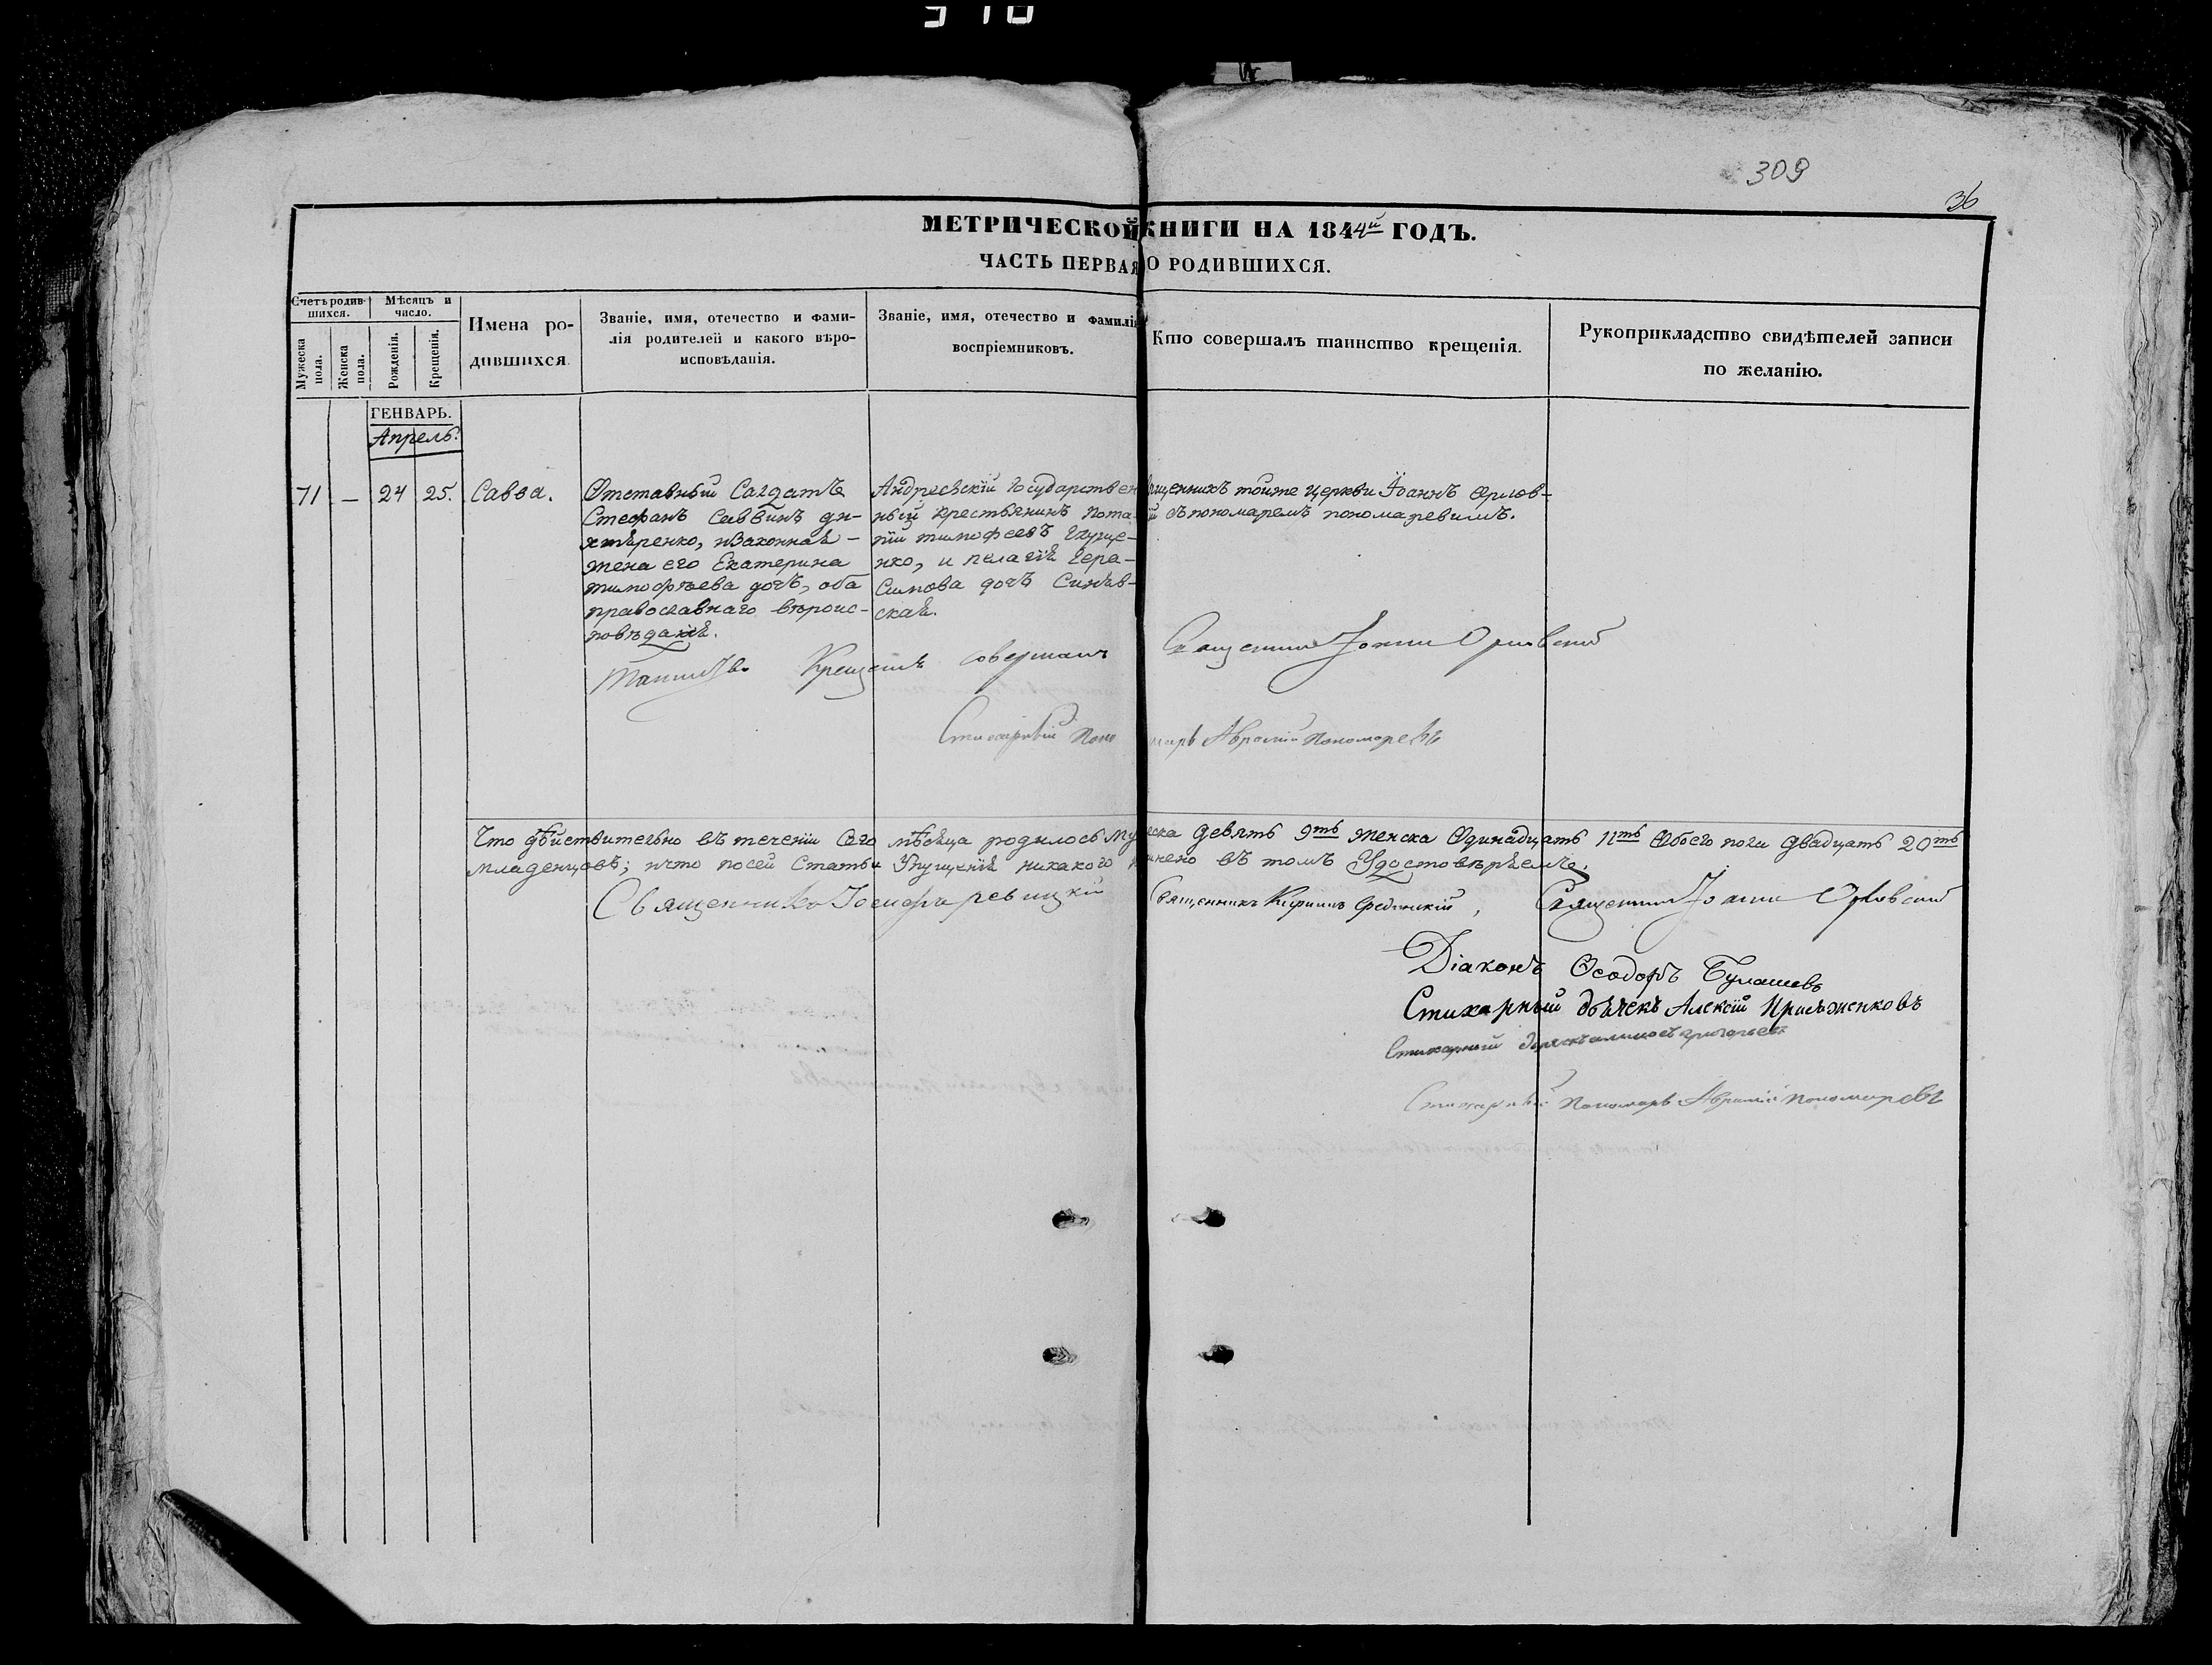 309
36
МЕТРИЧЕСКОЙ КНИГИ НА 1844й ГОДЪ.
ЧАСТЬ ПЕРВАЯ О РОДИВШИХСЯ.
Счетъ родившихся.
Мужеска пола.
Женска пола.
Мѣсяцъ и число.
Рожденія.
Крещенія.
Имена родившихся.
Званіе, имя, отечество и фамилія родителей и какого вѣроисповѣданія.
Званіе, имя, отечество и фамилія воспріемниковъ.
Кто совершалъ таинство крещенія.
Рукоприкладство свидѣтелей записи по желанію.
ГЕНВАРЬ.
Апрель.
71 — 24 25. Савва.
Отставный Салдатъ
Стефанъ Саввинъ ди-
хтѣренко, и Законнаѣ –
жена его Екатерина
тимофѣева дочь, оба
православнаго вѣроис-
повѣданіѣ.
Андреевскій государствен
ный крестьянинъ Пота-
пій тимофеевъ Глуще-
нко, и пелагіѣ Гера-
симова дочь Синѣв-
скаѣ.
щенникъ тойже церкви Іоаннъ Орлов-
й съ пономаремъ пономаревимъ.
Таинство Крещеніѣ совершалъ Священникъ Іоаннъ Орловский
Стихарный Пономарь Аврамій Пономаревъ
Что дѣйствительно въ теченіи сего мѣсѣца родилось Мужеска девять 9ть женска Одинадцать 11ть Обоего пола двадцать 20ть
младенцовъ; и что по сей Статьи Упущеніѣ никакого нено въ томъ Удостовѣрѣемъ.
Священникъ Іосифъ ревицкій Священникъ Кириллъ Священникъ Іоаннъ Орловский
Діаконъ Ѳеодоръ Булашевъ
Стихарный дьячекъ Алексій
Стихарный григорьевъ
Стихарный Пономарь Аврамій Пономаревъ